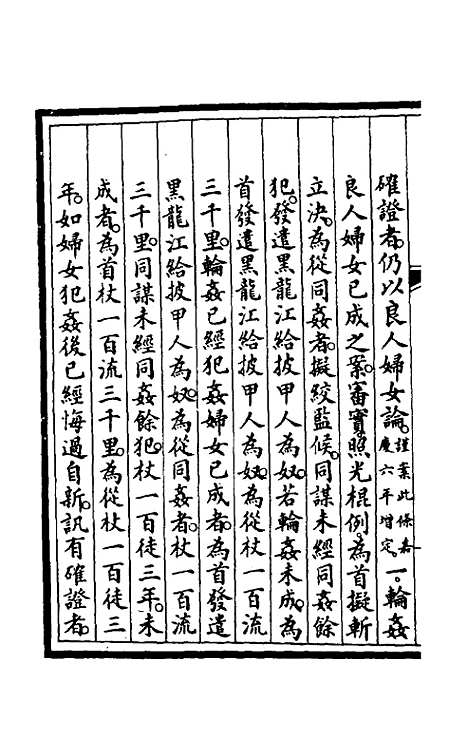 確證者。仍以良人婦女論。謹案此條嘉慶六年增定 一。輪姦
良人婦女已成之案。審實。照光棍例。為首擬斬
立決。為從同姦者。擬絞監候。同謀未經同姦餘
犯。發遣黑龍江給披甲人為奴。若輪姦未成。為
首發遣黑龍江給披甲人為奴。為從杖一百流
三千里。輪姦已經犯姦婦女已成者。為首發遣
黑龍江給披甲人為奴。為從同姦者。杖一百流
三千里。同謀未經同姦餘犯。杖一百徒三年。未
成者。為首杖一百流三千里。為從杖一百徒三
年。如婦女犯姦後已經悔過自新。訊有確證者。